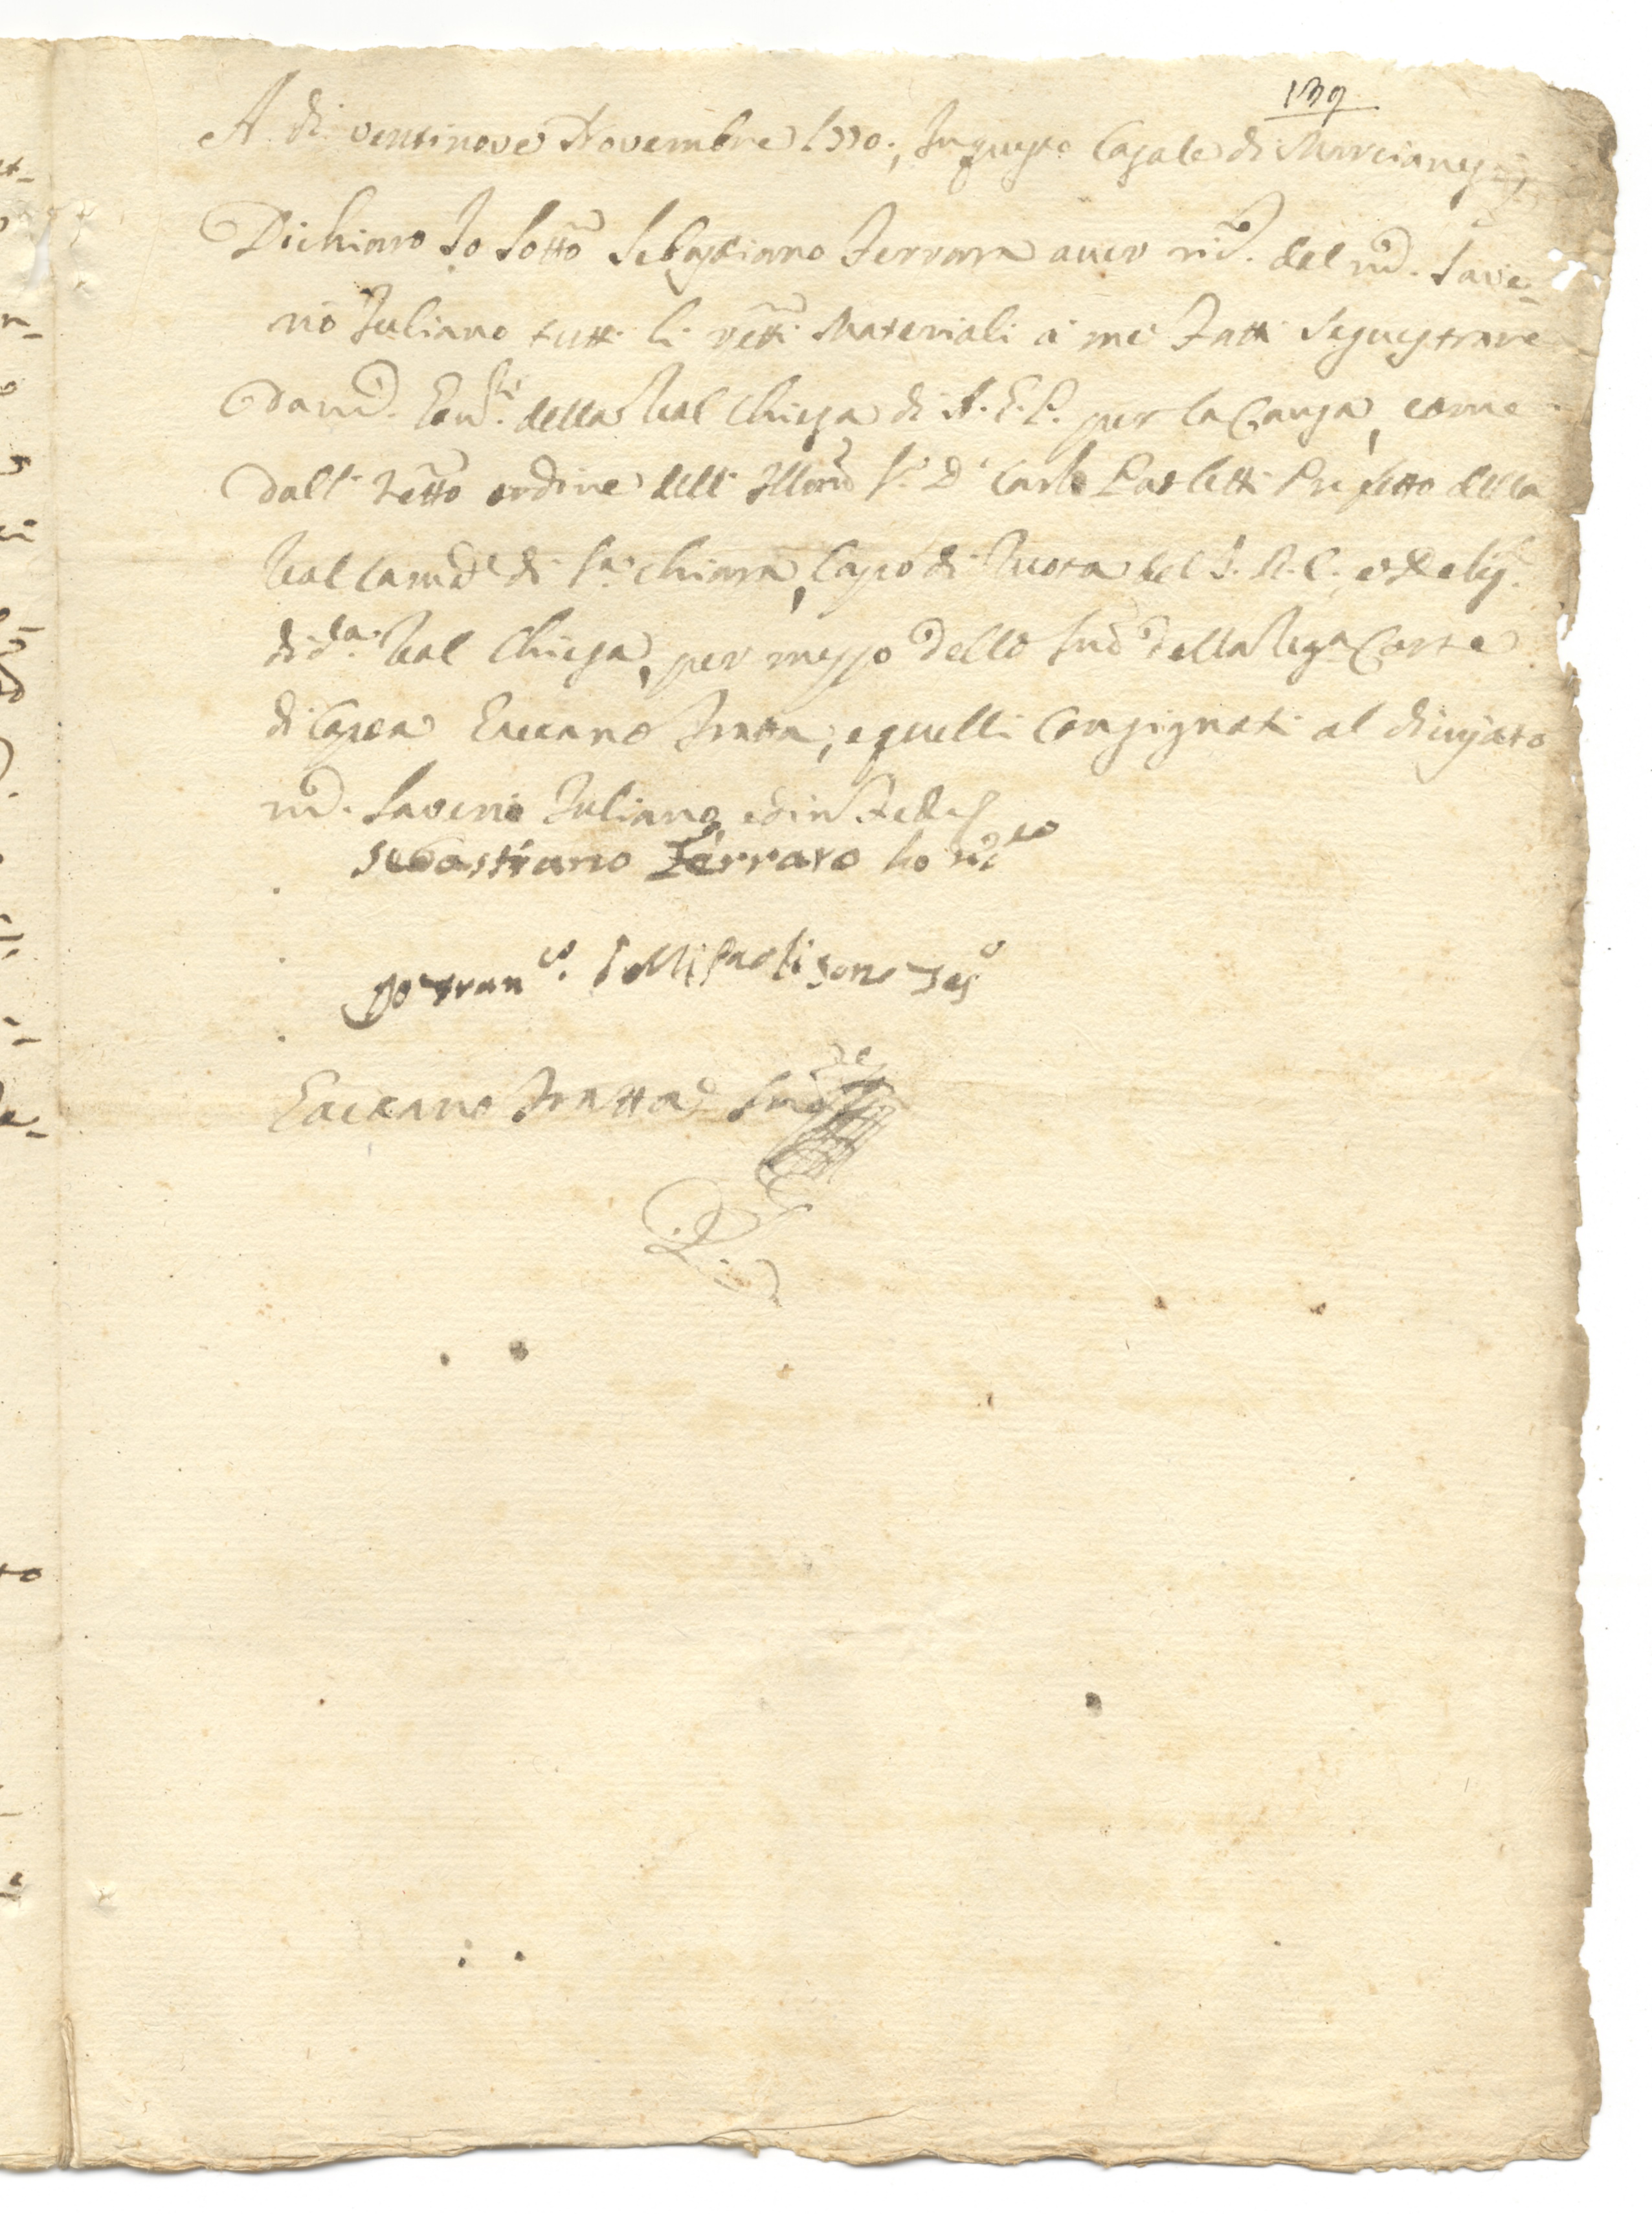 139
A di ventinove Novembre 1770., In questo Casale di Marcianesi
Dichiaro Io sotto Sebastiano Ferrara aver ric. del md. Save-
rio Iuliano tutti li retti Materiali a me fatti sequestrare
da md. della Real Chiesa di A. G. P. per la Causa, come
dall' retto ordine dell' Illmo Sr. D. Carlo Paoletti Prefetto della
Real Cam. di Sa. Chiara, Capo di Ruota del S. R. C., e Deleg.
di da. Real Chiesa, per mezzo dello della Rega Corte
di Capua Gaetano Fratta, e quelli Consignati al divisato
md. Saverio Iuliano, ed in fede
Sebastiano Ferraro ho ric.to
Io Fran co. sono tes o
Gaetano Fratta